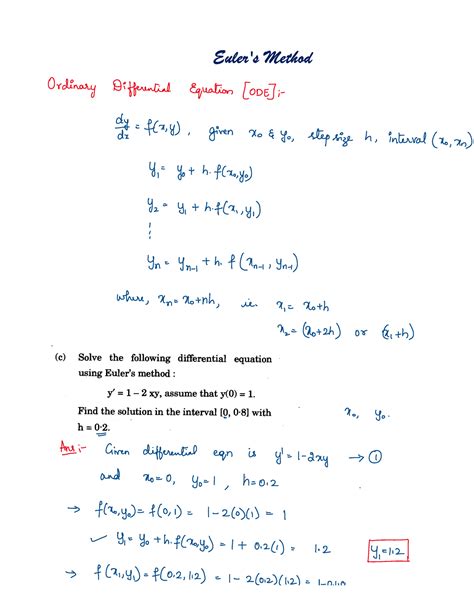 Euler's Method
Ordinary Differential Equation [ODE]:-
dy/dx = f(x,y), given x₀ & y₀, step size h, interval (x₀, xn)
y₁ = y₀ + h.f(x₀,y₀)
y₂ = y₁ + h.f(x₁,y₁)
⋮
yn = yn-1 + h.f(xn-1, yn-1)
where, xn = x₀+nh, ie. x₁ = x₀+h
x₂ = (x₀+2h) or (x₁+h)
(c) Solve the following differential equation
using Euler's method :
y′ = 1 – 2 xy, assume that y(0) = 1.
Find the solution in the interval [0, 0·8] with
h = 0·2.
x₀, y₀.
Ans:- Given differential eqn is y' = 1-2xy → ①
and x₀=0, y₀=1, h=0.2
→ f(x₀,y₀) = f(0,1) = 1-2(0)(1) = 1
✓ y₁ = y₀ + h.f(x₀,y₀) = 1 + 0.2(1) = 1.2
y₁=1.2
→ f(x₁,y₁) = f(0.2, 1.2) = 1-2(0.2)(1.2) =